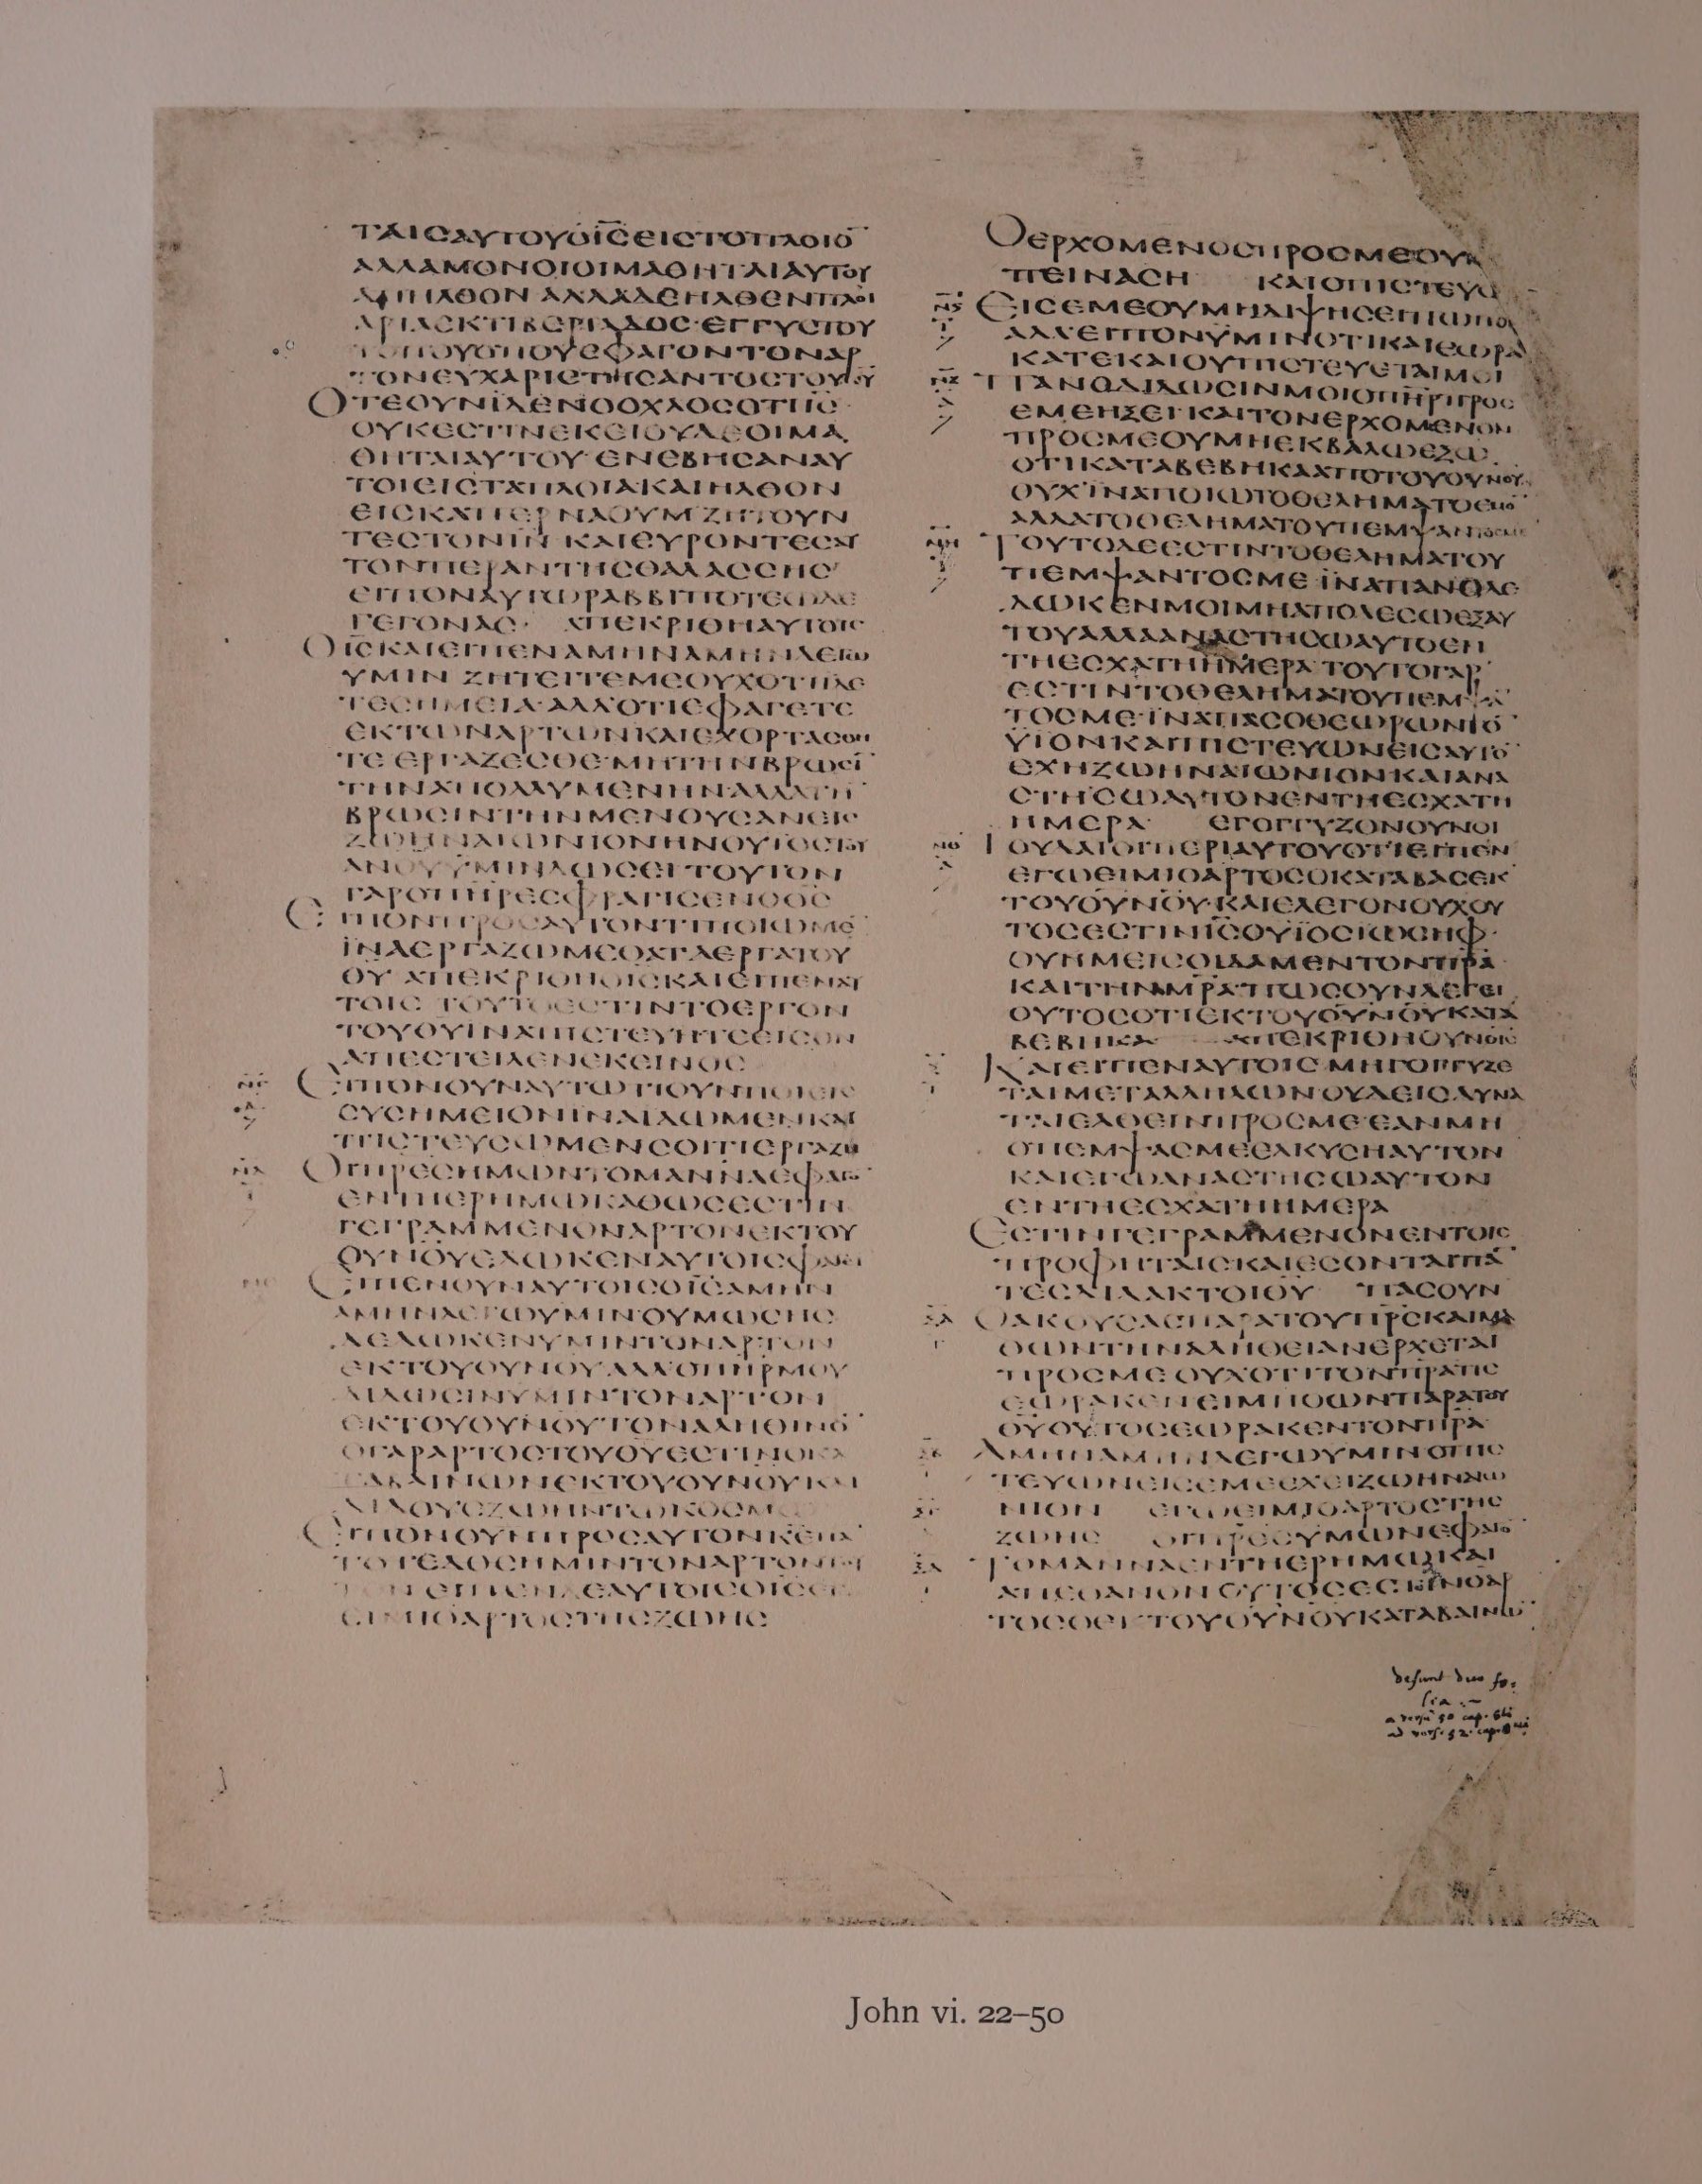 ΤΑΙCΑΥΤΟΥΟΙ̅C̅ΕΙCΤΟΠΛΟΙΟ̅
ΑΛΛΑΜΟΝΟΙΟΙΜΑΘΗΤΑΙΑΥΤΟΥ
ΑΠΗΛΘΟΝ ΑΛΛΑΔΕΗΛΘΕΝΠΛΟΙ
ΑΡΙΑΕΚΤΙΒΕΡΙΑΔΟC·ΕΓΓΥCΤΟΥ
ΤΟΠΟΥΟΠΟΥΕΦΑΓΟΝΤΟΝΑΡ
ΤΟΝΕΥΧΑΡΙCΤΗCΑΝΤΟCΤΟΥΚ̅Υ̅
ΟΤΕΟΥΝΙΔΕΝΟΟΧΛΟCΟΤΙΙ̅C̅
ΟΥΚΕCΤΙΝΕΚΕΙΟΥΔΕΟΙΜΑ
ΘΗΤΑΙΑΥΤΟΥ ΕΝΕΒΗCΑΝΑΥ
ΤΟΙΕΙCΤΑΠΛΟΙΑΚΑΙΗΛΘΟΝ
ΕΙCΚΑΠΕΡΝΑΟΥΜ ΖΗΤΟΥΝ
ΤΕCΤΟΝΙ̅Ν̅ ΚΑΙΕΥΡΟΝΤΕCΑΥ
ΤΟΝΠΕΡΑΝΤΗCΘΑΛΑCCΗC
ΕΙΠΟΝΑΥΤΩΡΑΒΒΙΠΟΤΕΩΔΕ
ΓΕΓΟΝΑC· ΑΠΕΚΡΙΘΗΑΥΤΟΙC
ΟΙ̅C̅ΚΑΙΕΙΠΕΝΑΜΗΝΑΜΗΝΛΕΓΩ
ΥΜΙΝ ΖΗΤΕΙΤΕΜΕΟΥΧΟΤΙΙΔΕ
ΤΕCΗΜΕΙΑ·ΑΛΛΟΤΙΕΦΑΓΕΤΕ
ΕΚΤΩΝΑΡΤΩΝΚΑΙΕΧΟΡΤΑCΘΗ
ΤΕ ΕΡΓΑΖΕCΘΕΜΗΤΗΝΒΡΩCΙ̅
ΤΗΝΑΠΟΛΛΥΜΕΝΗΝΑΛΛΑΤΗ̅
ΒΡΩCΙΝΤΗΝΜΕΝΟΥCΑΝΕΙC
ΖΩΗΝΑΙΩΝΙΟΝΗΝΟΥΙΟCΤΟΥ
Α̅Ν̅Ο̅Υ̅ΥΜΙΝΔΩCΕΙ ΤΟΥΤΟΝ
ΓΑΡΟΠ̅Η̅Ρ̅ΕCΦΡΑΓΙCΕΝΟΘ̅C̅
ΕΙΠΟΝΠΡΟCΑΥΤΟΝΤΙΠΟΙΩΜΕ̅
ΙΝΑΕΡΓΑΖΩΜΕΘΑΤΑΕΡΓΑΤΟΥ
Θ̅Υ̅ ΑΠΕΚΡΙΘΗΟΙ̅C̅ΚΑΙΕΙΠΕΝΑΥ
ΤΟΙC ΤΟΥΤΟΕCΤΙΝΤΟΕΡΓΟΝ
ΤΟΥΘ̅Υ̅ΙΝΑΠΙCΤΕΥΗΤΕΕΙCΟΝ
ΑΠΕCΤΕΙΛΕΝΕΚΕΙΝΟC
ΕΙΠΟΝΟΥΝΑΥΤΩΤΙΟΥΝΠΟΙΕΙC
CΥCΗΜΕΙΟΝΙΝΑΙΔΩΜΕΝΚΑΙ
ΠΙCΤΕΥCΩΜΕΝCΟΙΤΙΕΡΓΑΖΗ
ΟΙΠ̅Ρ̅Ε̅C̅ΗΜΩΝΤΟΜΑΝΝΑΕΦΑΓΟ̅
ΕΝΤΗΕΡΗΜΩΚΑΘΩCΕCΤΙΝ
ΓΕΓΡΑΜΜΕΝΟΝΑΡΤΟΝΕΚΤΟΥ
ΟΥΝΟΥΕΔΩΚΕΝΑΥΤΟΙCΦΑΓΕΙ
ΕΙΠΕΝΟΥΝΑΥΤΟΙCΟΙ̅C̅ΑΜΗΝ
ΑΜΗΝΛΕΓΩΥΜΙΝΟΥΜΩCΗC
ΔΕΔΩΚΕΝΥΜΙΝΤΟΝΑΡΤΟΝ
ΕΚΤΟΥΟΥΝΟΥ ΑΛΛΟΠ̅Η̅Ρ̅ΜΟΥ
ΔΙΔΩCΙΝΥΜΙΝΤΟΝΑΡΤΟΝ
ΕΚΤΟΥΟΥΝΟΥΤΟΝΑΛΗΘΙΝΟ̅
ΟΓΑΡΑΡΤΟCΤΟΥΘ̅Υ̅ΕCΤΙΝΟΚΑ
ΤΑΒΑΙΝΩΝΕΚΤΟΥΟΥΝΟΥΚΑΙ
ΔΙΔΟΥCΖΩΗΝΤΩΚΟCΜΩ
ΕΙΠΟΝΟΥΝΠΡΟCΑΥΤΟΝΚ̅Ε̅ΠΑ̅
ΤΟΤΕΔΟCΗΜΙΝΤΟΝΑΡΤΟΝΤΟΥ
ΤΟΝ ΕΙΠΕΝΔΕΑΥΤΟΙCΟΙ̅C̅ΕΓΩ
ΕΙΜΙΟΑΡΤΟCΤΗCΖΩΗC
ΟΕΡΧΟΜΕΝΟCΠΡΟCΜΕΟΥΜΗ
ΠΕΙΝΑCΗ ΚΑΙΟΠΙCΤΕΥΩ̅
ΕΙCΕΜΕΟΥΜΗΔΙΨΗCΕΙΠΩΠΟΤΕ
ΑΛΛΕΙΠΟΝΥΜΙΝΟΤΙΚΑΙΕΩΡΑ
ΚΑΤΕΚΑΙΟΥΠΙCΤΕΥΕΤΑΙΜΟΙ
ΠΑΝΟΔΙΔΩCΙΝΜΟΙΟΠ̅Η̅Ρ̅ΠΡΟC
ΕΜΕΗΞΕΙ ΚΑΙΤΟΝΕΡΧΟΜΕΝΟΝ
ΠΡΟCΜΕΟΥΜΗΕΚΒΑΛΩΕΞΩ
ΟΤΙΚΑΤΑΒΕΒΗΚΑΑΠΟΤΟΥΟΥΝΟΥ
ΟΥΧΙΝΑΠΟΙΩΤΟΘΕΛΗΜΑΤΟΕΜΟ̅
ΑΛΛΑΤΟΘΕΛΗΜΑΤΟΥΠΕΜΨΑΝΤΟCΜΕ
ΤΟΥΤΟΔΕΕCΤΙΝΤΟΘΕΛΗΜΑΤΟΥ
ΠΕΜΨΑΝΤΟCΜΕ ΙΝΑΠΑΝΟΔΕ
ΔΩΚΕΝΜΟΙΜΗΑΠΟΛΕCΩΕΞΑΥ
ΤΟΥΑΛΛΑΑΝΑCΤΗCΩΑΥΤΟΕΝ
ΤΗΕCΧΑΤΗΗΜΕΡΑ ΤΟΥΤΟΓΑΡ
ΕCΤΙΝΤΟΘΕΛΗΜΑΤΟΥΠΕΜΨΑ̅
ΤΟCΜΕ·ΙΝΑΠΑCΟΘΕΩΡΩΝΤΟ̅
ΥΙΟΝΚΑΙΠΙCΤΕΥΩΝΕΙCΑΥΤΟ̅
ΕΧΗΖΩΗΝΑΙΩΝΙΟΝΚΑΙΑΝΑ
CΤΗCΩΑΥΤΟΝΕΝΤΗΕCΧΑΤΗ
ΗΜΕΡΑ ΕΓΟΓΓΥΖΟΝΟΥΝΟΙ
ΙΟΥΔΑΙΟΙΠΕΡΙΑΥΤΟΥΟΤΙΕΙΠΕΝ
ΕΓΩΕΙΜΙΟΑΡΤΟCΟΚΑΤΑΒΑCΕΚ
ΤΟΥΟΥΝΟΥ·ΚΑΙΕΛΕΓΟΝΟΥΧΟΥ
ΤΟCΕCΤΙΝΙ̅C̅ΟΥΙΟCΙΩCΗΦ·
ΟΥΗΜΕΙCΟΙΔΑΜΕΝΤΟΝΠ̅Ρ̅Α̅
ΚΑΙΤΗΝΜ̅Ρ̅Α̅ΠΩCΟΥΝΛΕΓΕΙ
ΟΥΤΟCΟΤΙΕΚΤΟΥΟΥΝΟΥΚΑΤΑ
ΒΕΒΗΚΑ ΑΠΕΚΡΙΘΗΟΥΝΟΙC
ΚΑΙΕΙΠΕΝΑΥΤΟΙC ΜΗΓΟΓΓΥΖΕ
ΤΑΙΜΕΤΑΛΛΗΛΩΝΟΥΔΕΙCΔΥΝΑ
ΤΑΙΕΛΘΕΙΝΠΡΟCΜΕ ΕΑΝΜΗ
ΟΠΕΜΨΑCΜΕΕΛΚΥCΗΑΥΤΟΝ
ΚΑΙΕΓΩΑΝΑCΤΗCΩΑΥΤΟΝ
ΕΝΤΗΕCΧΑΤΗΗΜΕΡΑ
ΕCΤΙΝΓΕΓΡΑΜΜΕΝΟΝΕΝΤΟΙC
ΠΡΟΦΗΤΑΙCΚΑΙΕCΟΝΤΑΙΠΑ̅
ΤΕCΔΙΔΑΚΤΟΙΘ̅Υ̅ ΠΑCΟΥΝ
ΟΑΚΟΥCΑCΠΑΡΑΤΟΥΠ̅Ρ̅C̅ΚΑΙΜΑ
ΘΩΝΤΗΝΑΛΗΘΕΙΑΝΕΡΧΕΤΑΙ
ΠΡΟCΜΕ ΟΥΧΟΤΙΤΟΝΠ̅Ρ̅Α̅ΤΙC
ΕΩΡΑΚΕΝΕΙΜΗΟΩΝΠΑΡΑΤΟΥ
Θ̅Υ̅ΟΥΤΟCΕΩΡΑΚΕΝΤΟΝΠ̅Ρ̅Α̅
ΑΜΗΝΑΜΗΝΛΕΓΩΥΜΙΝΟΠΙC
ΤΕΥΩΝΕΙCΕΜΕΕΧΕΙΖΩΗΝΑΙΩ
ΝΙΟΝ ΕΓΩΕΙΜΙΟΑΡΤΟCΤΗC
ΖΩΗC ΟΙΠ̅Ρ̅Ε̅C̅ΥΜΩΝΕΦΑΓΟ̅
ΤΟΜΑΝΝΑΕΝΤΗΕΡΗΜΩΚΑΙ
ΑΠΕΘΑΝΟΝ ΟΥΤΟCΕCΤΙΝΟΑΡ
ΤΟCΟΕΚΤΟΥΟΥΝΟΥΚΑΤΑΒΑΙΝΩ̅
desunt duo fo-
lia
a vers 50 cap. 6ti
ad vers. 52 cap. 8vi
John vi. 22–50